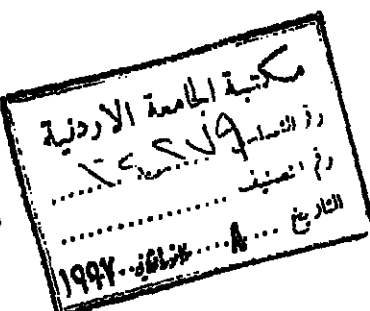 مكتبة الجامعة الاردنية
رقم التسلسل
رقم التصنيف
التاريخ ٨ ١٩٩٧